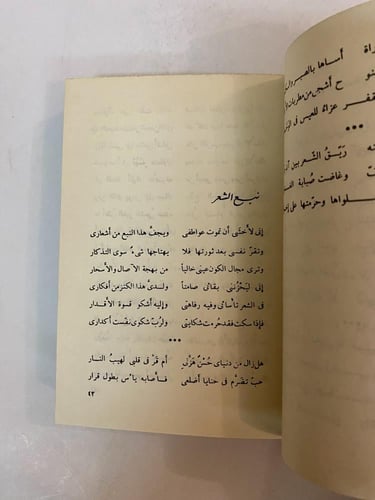 نبع الشعر
إني لأخشى أن تموت عواطفي ويجف هذا النبع من أشعاري
وتقر نفسي بعد ثورتها فلا يهتاجها شيء سوى التذكار
وترى مجال الكون عيني خالياً من بهجة الآصال والأسحار
إني ليحزنني بقائي صامتاً ولدي هذا الكنز من أفكاري
في الشعر تأسائي وفيه رفاهتي وإليه أشكو قسوة الأقدار
فإذا سكت فقد حرمت شكايتي ولرب شكوى نفست أكداري
***
هل زال من دنياي حُسنٌ هزني أم قرّ في قلبي لهيب النار
حبٌ تضرّم في حنايا أضلعي فأصابه يأس بطول قرار
٢٣
أساها بالصبر
ح أشجى من مطربات
قفر عزاءً للعيس في
***
ريّق الشعر بين
وغاضت صبابة
لواها وحرّمتها على